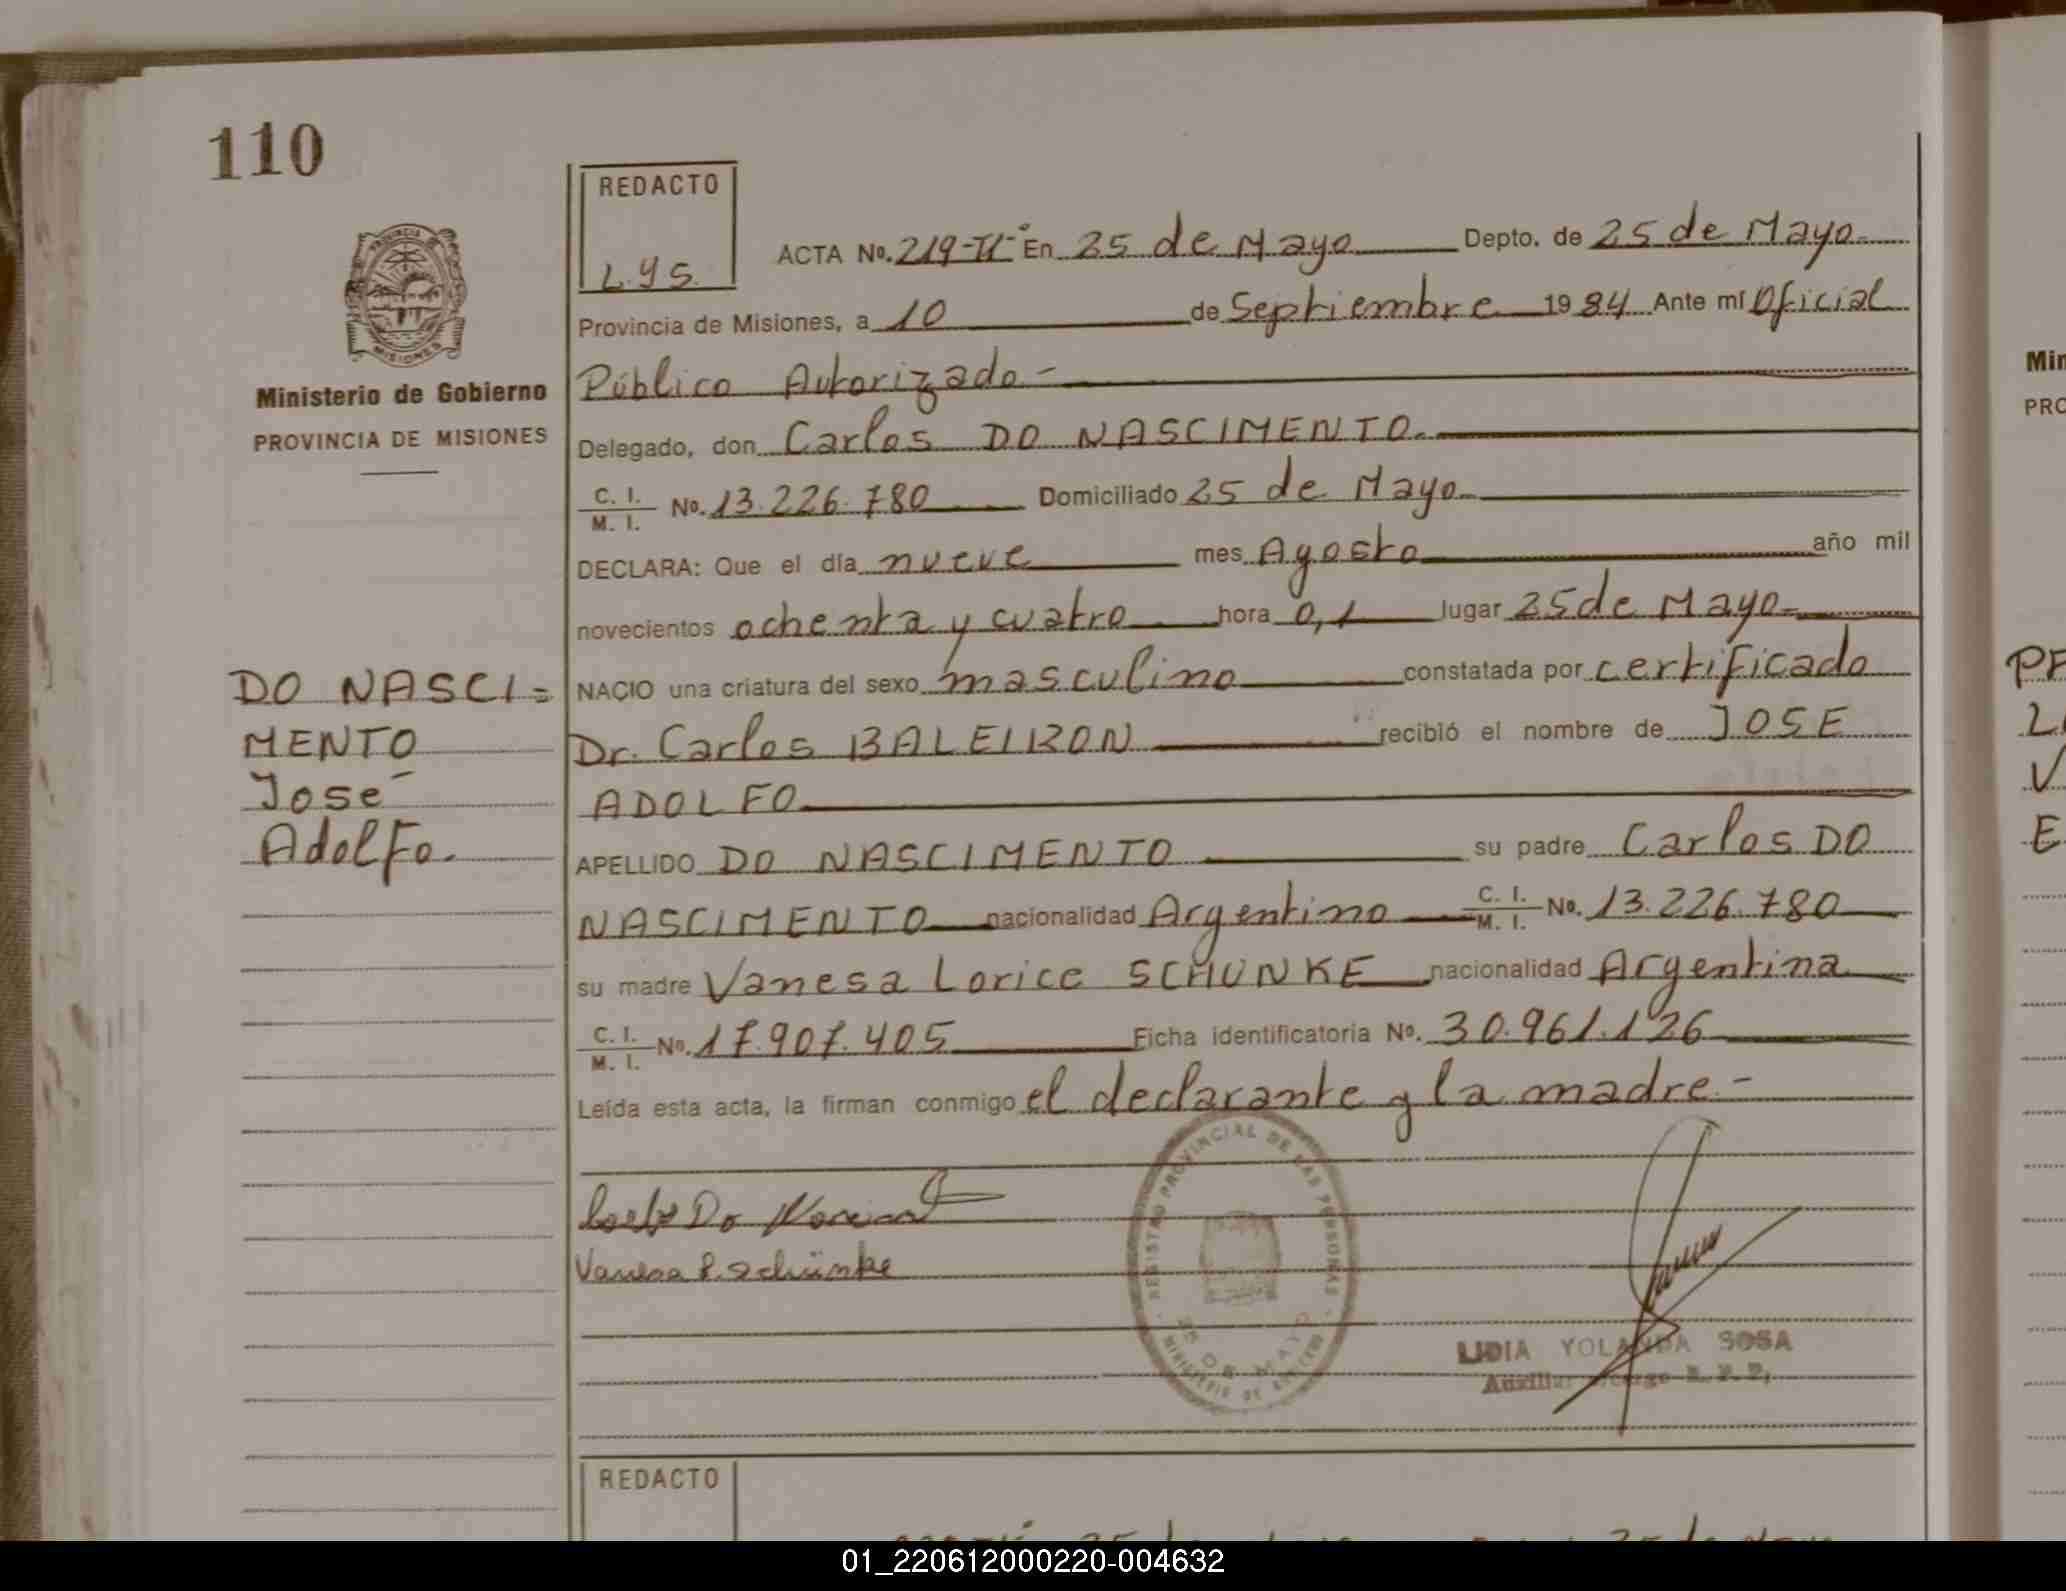 110
REDACTO
L.Y.S.
ACTA No. 219-TI-° En 25 de Mayo Depto. de 25 de Mayo
Provincia de Misiones, a 10 de Septiembre 1984 Ante mí Oficial
Público Autorizado -
Delegado, don Carlos DO NASCIMENTO.
C. I. M. I. No. 13.226.780 Domiciliado 25 de Mayo
DECLARA: Que el día nueve mes Agosto año mil
novecientos ochenta y cuatro hora 0,1 lugar 25 de Mayo
NACIO una criatura del sexo masculino constatada por certificado
Dr. Carlos BALEIRON recibió el nombre de JOSE
ADOLFO
APELLIDO DO NASCIMENTO su padre Carlos DO
NASCIMENTO nacionalidad Argentino C. I. M. I. No. 13.226.780
su madre Vanesa Lorice SCHUNKE nacionalidad Argentina
C. I. M. I. No. 17.907.405 Ficha identificatoria No. 30.961.126
Leída esta acta, la firman conmigo el declarante y la madre.-
PROVINCIA DE
MISIONES
Ministerio de Gobierno
PROVINCIA DE MISIONES
DO NASCI=
MENTO
José
Adolfo.
Carlos Do
Vanesa L. Schünke
REGISTRO PROVINCIAL DE LAS PERSONAS
25 DE MAYO
MINISTERIO DE GOBIERNO
LIDIA YOLANDA SOSA
Auxiliar
REDACTO
Min
PRO
E
01_220612000220-004632